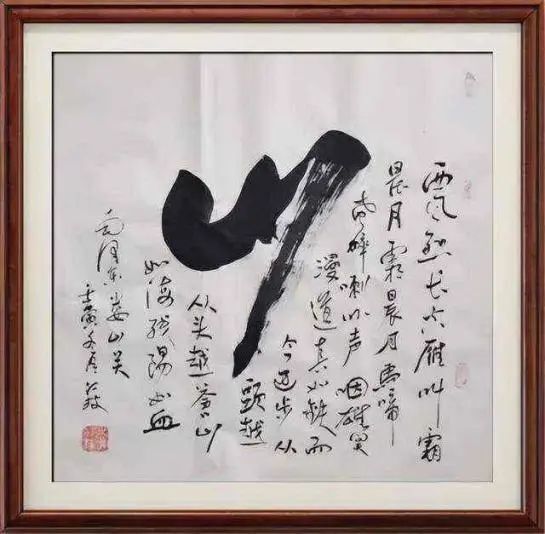 西风烈长空雁叫霜
晨月霜晨月馬啼
声碎喇叭声咽雄关
漫道真如铁而
今迈步从
頭越
从头越苍山
如海残阳如血
毛泽东娄山关
壬寅冬月